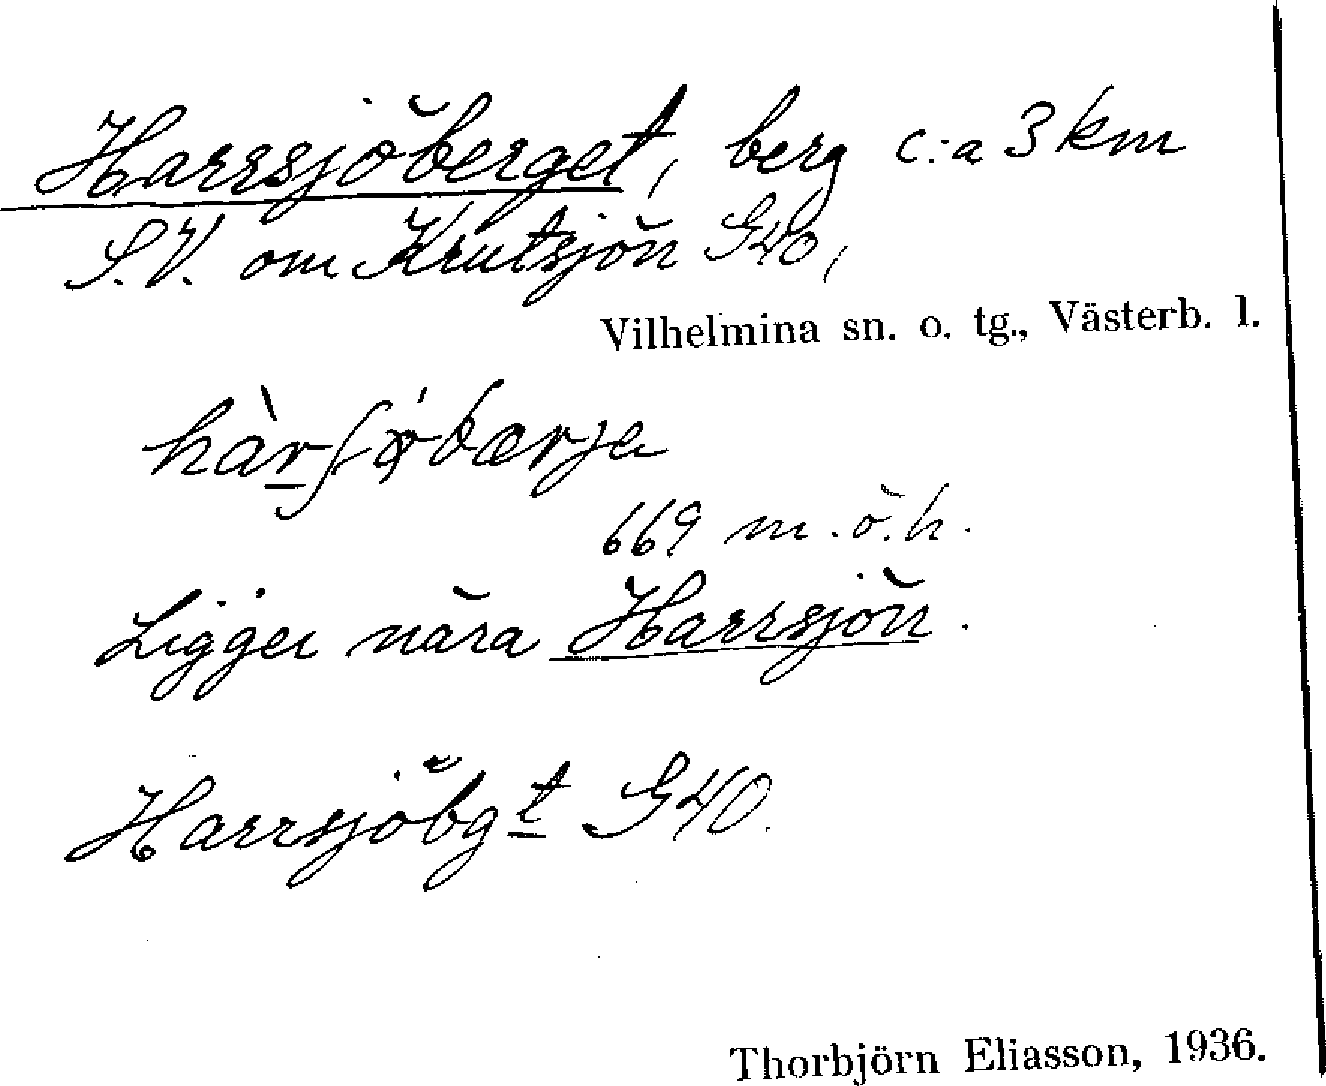 Harrsjöberget, berg c:a 3 km
S.V. om Krutsjön G40,
Vilhelmina sn. o. tg., Västerb. l.
hàr̲ʃø̀bærjə
669 m.ö.h.
Ligger nära Harrsjön.
Harrsjöbgt G40.
Thorbjörn Eliasson, 1936.